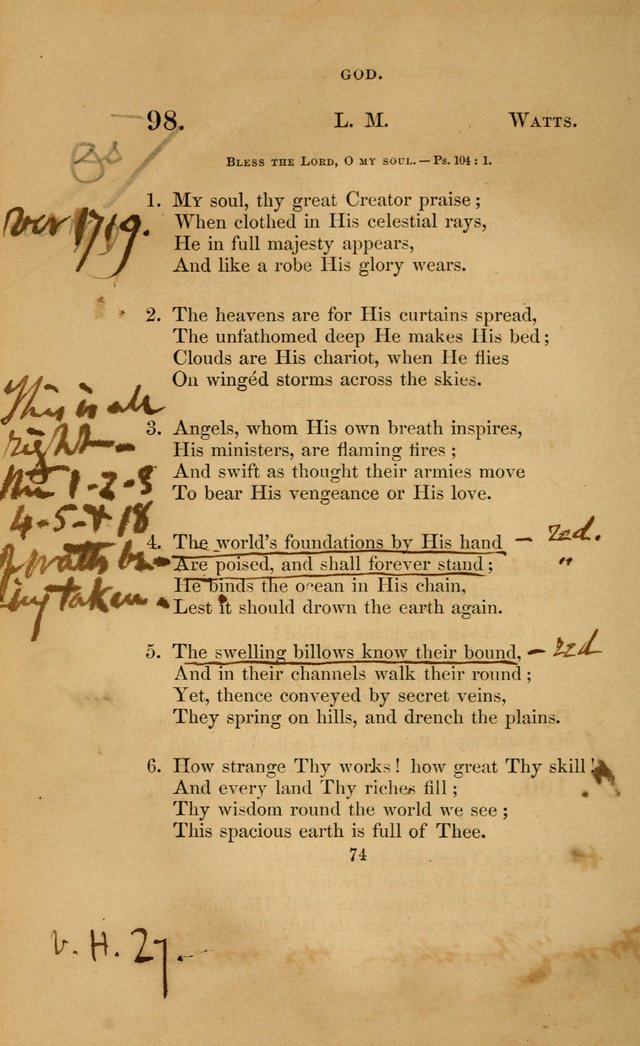 GOD.
98. L. M. WATTS.
BLESS THE LORD, O MY SOUL. — Ps. 104 : 1.
1. MY soul, thy great Creator praise;
When clothed in His celestial rays,
He in full majesty appears,
And like a robe His glory wears.
ver 1719.
2. The heavens are for His curtains spread,
The unfathomed deep He makes His bed;
Clouds are His chariot, when He flies
On wingéd storms across the skies.
3. Angels, whom His own breath inspires,
His ministers, are flaming fires;
And swift as thought their armies move
To bear His vengeance or His love.
This is all
right —
1-2-3
4-5-& 18
of Watts be-
ing taken.
4. The world's foundations by His hand — red.
Are poised, and shall forever stand; "
He binds the ocean in His chain,
Lest it should drown the earth again.
5. The swelling billows know their bound, — red
And in their channels walk their round;
Yet, thence conveyed by secret veins,
They spring on hills, and drench the plains.
6. How strange Thy works! how great Thy skill!
And every land Thy riches fill;
Thy wisdom round the world we see;
This spacious earth is full of Thee.
74
v. H. 27.